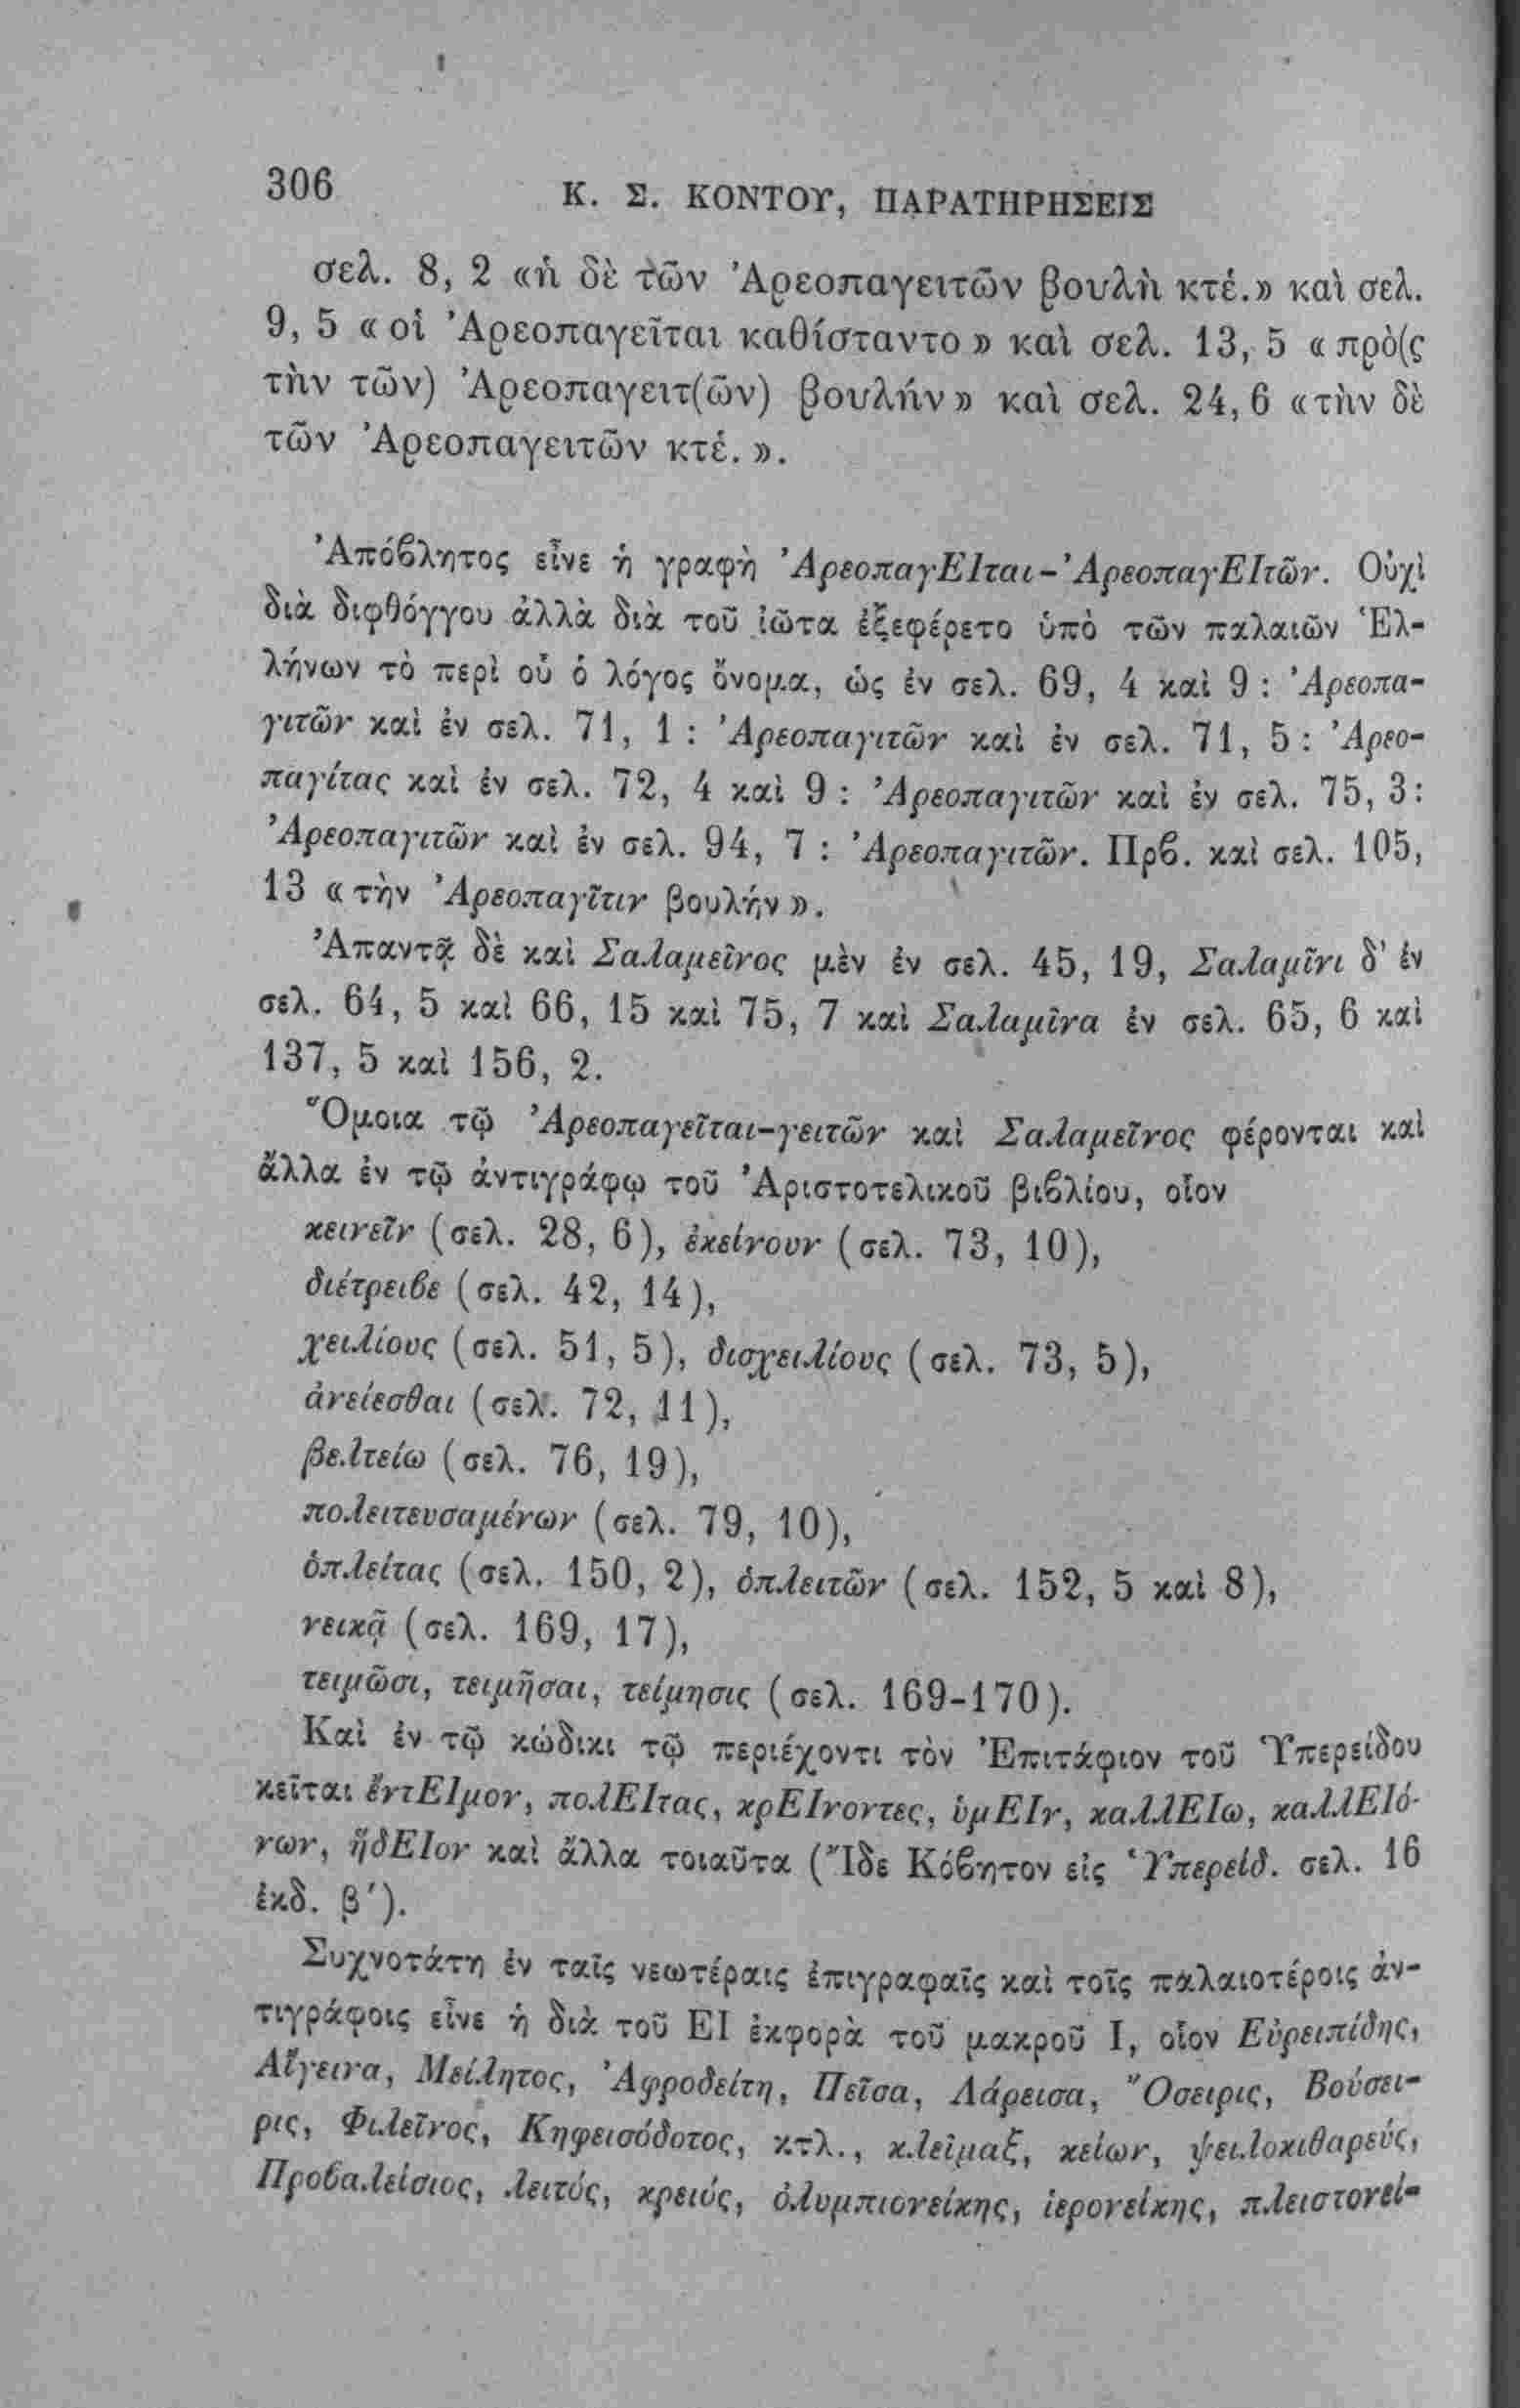 306
Κ. Σ. ΚΟΝΤΟΥ, ΠΑΡΑΤΗΡΗΣΕΙΣ
σελ. 8, 2 «ἡ δὲ τῶν Ἀρεοπαγειτῶν βουλὴ κτέ.» καὶ σελ.
9, 5 «οἱ Ἀρεοπαγεῖται καθίσταντο» καὶ σελ. 13, 5 «πρὸ(ς
τὴν τῶν) Ἀρεοπαγειτ(ῶν) βουλήν» καὶ σελ. 24, 6 «τὴν δὲ
τῶν Ἀρεοπαγειτῶν κτέ.».
Ἀπόβλητος εἶνε ἡ γραφὴ ἈρεοπαγΕΙται-ἈρεοπαγΕΙτῶν. Οὐχὶ
διὰ διφθόγγου ἀλλὰ διὰ τοῦ ἰῶτα ἐξεφέρετο ὑπὸ τῶν παλαιῶν Ἑλ-
λήνων τὸ περὶ οὗ ὁ λόγος ὄνομα, ὡς ἐν σελ. 69, 4 καὶ 9 : Ἀρεοπα-
γιτῶν καὶ ἐν σελ. 71, 1 : Ἀρεοπαγιτῶν καὶ ἐν σελ. 71, 5 : Ἀρεο-
παγίτας καὶ ἐν σελ. 72, 4 καὶ 9 : Ἀρεοπαγιτῶν καὶ ἐν σελ. 75, 3 :
Ἀρεοπαγιτῶν καὶ ἐν σελ. 94, 7 : Ἀρεοπαγιτῶν. Πρβ. καὶ σελ. 105,
13 «τὴν Ἀρεοπαγῖτιν βουλήν».
Ἀπαντᾷ δὲ καὶ Σαλαμεῖνος μὲν ἐν σελ. 45, 19, Σαλαμῖνι δ' ἐν
σελ. 64, 5 καὶ 66, 15 καὶ 75, 7 καὶ Σαλαμῖνα ἐν σελ. 65, 6 καὶ
137, 5 καὶ 156, 2.
Ὅμοια τῷ Ἀρεοπαγεῖται-γειτῶν καὶ Σαλαμεῖνος φέρονται καὶ
ἄλλα ἐν τῷ ἀντιγράφῳ τοῦ Ἀριστοτελικοῦ βιβλίου, οἷον
κεινεῖν (σελ. 28, 6), ἐκείνουν (σελ. 73, 10),
διέτρειβε (σελ. 42, 14),
χειλίους (σελ. 51, 5), δισχειλίους (σελ. 73, 5),
ἀνείεσθαι (σελ. 72, 11),
βελτείω (σελ. 76, 19),
πολειτευσαμένων (σελ. 79, 10),
ὁπλείτας (σελ. 150, 2), ὁπλειτῶν (σελ. 152, 5 καὶ 8),
νεικᾷ (σελ. 169, 17),
τειμῶσι, τειμῆσαι, τείμησις (σελ. 169-170).
Καὶ ἐν τῷ κώδικι τῷ περιέχοντι τὸν Ἐπιτάφιον τοῦ Ὑπερείδου
κεῖται ἔντΕΙμον, πολΕΙτας, κρΕΙνοντες, ὑμΕΙν, καλλΕΙω, καλλΕΙό-
νων, ἥδΕΙον καὶ ἄλλα τοιαῦτα (Ἴδε Κόβητον εἰς Ὑπερείδ. σελ. 16
ἐκδ. β').
Συχνοτάτη ἐν ταῖς νεωτέραις ἐπιγραφαῖς καὶ τοῖς παλαιοτέροις ἀν-
τιγράφοις εἶνε ἡ διὰ τοῦ ΕΙ ἐκφορὰ τοῦ μακροῦ Ι, οἷον Εὐρειπίδης,
Αἴγεινα, Μείλητος, Ἀφροδείτη, Πεῖσα, Λάρεισα, Ὄσειρις, Βούσει-
ρις, Φιλεῖνος, Κηφεισόδοτος, κτλ., κλεῖμαξ, κείων, ψειλοκιθαρεύς,
Προβαλείσιος, λειτός, κρειός, ὀλυμπιονείκης, ἱερονείκης, πλειστονεί-